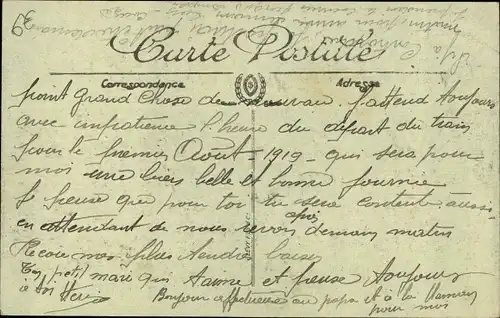 39
Carte Postale
Correspondance
Adresse
point Grand Chose de nouveau. J'attend toujours
avec inpatience l'heure du départ du train
pour le premier Août - 1919 - qui sera pour
moi une biens belle et bonne journée
Je pense que pour toi tu sera contente aussi
en attendant de nous revoir après demain matin
Recois mes plus tendre baiser
Ton petit mari qui t'aime et pense toujours
à toi
Bonjour affectueuse au papa et à la Maman
pour moi